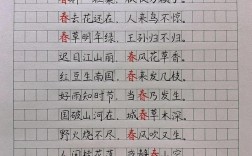 春去花还在，人来鸟不惊。
春草明年绿，王孙归不归。
迟日江山丽，春风花草香。
红豆生南国，春来发几枝。
好雨知时节，当春乃发生。
国破山河在，城春草木深。
野火烧不尽，春风吹又生。